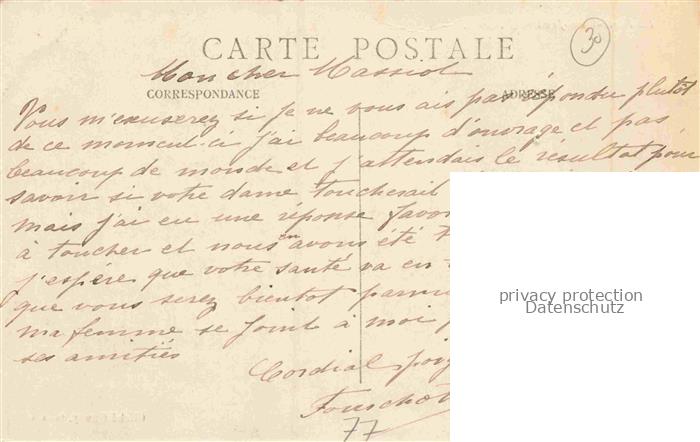 30
CARTE POSTALE
Mon cher Massiot
CORRESPONDANCE
ADRESSE
Vous m'excuserez si je ne vous ais pas répondu plutot
de ce moment-ci j'ai beaucoup d'ouvrage et pas
beaucoup de monde et j'attendais le résultat pour
savoir si votre dame toucherait
mais j'ai eu une réponse favor
à toucher et nous en avons été
j'espère que votre santé va en
que vous serez bientot parmi
ma femme se joint à moi
ses amitiés
Cordial
77
privacy protection
Datenschutz